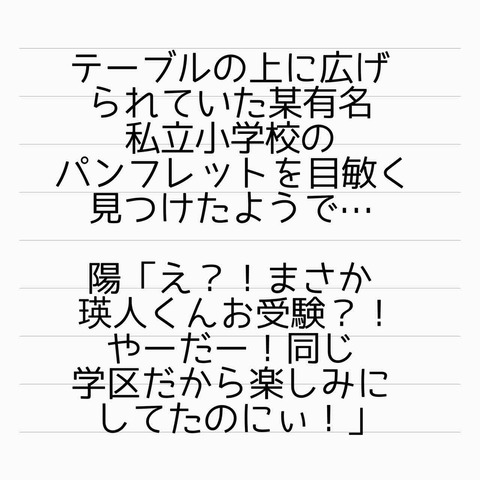 テーブルの上に広げ
られていた某有名
私立小学校の
パンフレットを目敏く
見つけたようで…
陽「え？！まさか
瑛人くんお受験？！
やーだー！同じ
学区だから楽しみに
してたのにぃ！」